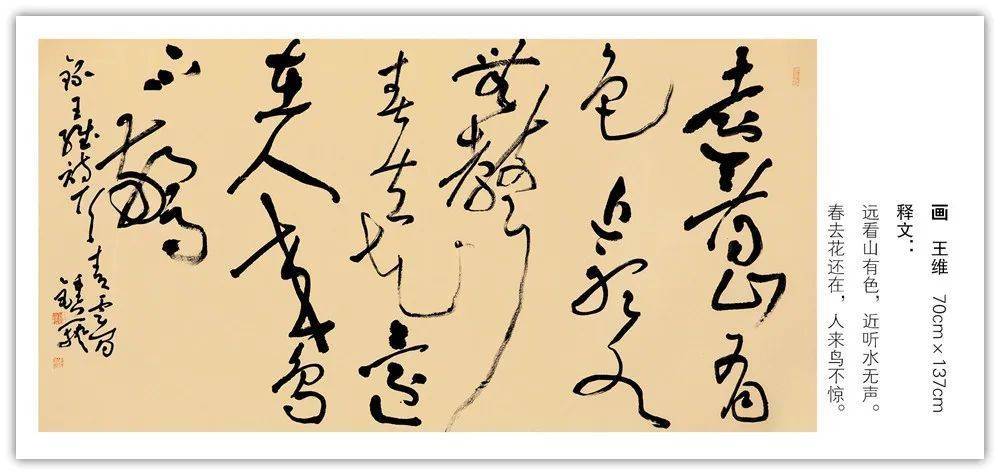 画 王维 70cm×137cm
释文：
远看山有色，近听水无声。
春去花还在，人来鸟不惊。
遠看山有
色近聽水
無聲
春去花還
在人來鳥
不驚
錄王維詩